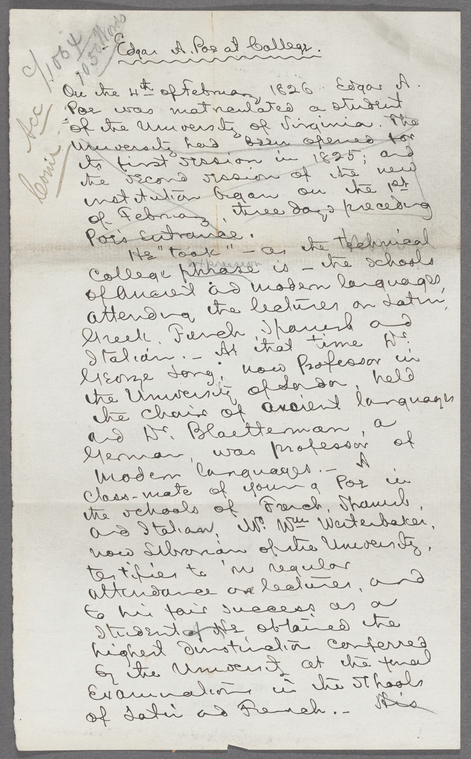 Acc
C/1064
Edgar A. Poe at College.
On the 4th of February 1826 Edgar A.
Poe was matriculated a student
of the University of Virginia. The
University had been opened for
its first session in 1825; and
the second session of the new
institution began on the 1st
of February, three days preceding
Poe's entrance.
He "took" – as the technical
College phrase is – the schools
of Ancient and modern languages,
attending the lectures on Latin,
Greek, French, Spanish and
Italian. – At that time Dr.
George Long, now Professor in
the University of London, held
the chair of ancient languages
and Dr. Blaetterman, a
German, was professor of
modern languages. – A
class-mate of young Poe in
the schools of French, Spanish,
and Italian, Mr. Wm Wertenbaker,
now Librarian of the University,
testifies to his regular
attendance on lectures, and
to his fair success as a
student. He obtained the
highest distinction conferred
by the University at the final
Examinations in the schools
of Latin and French. – His